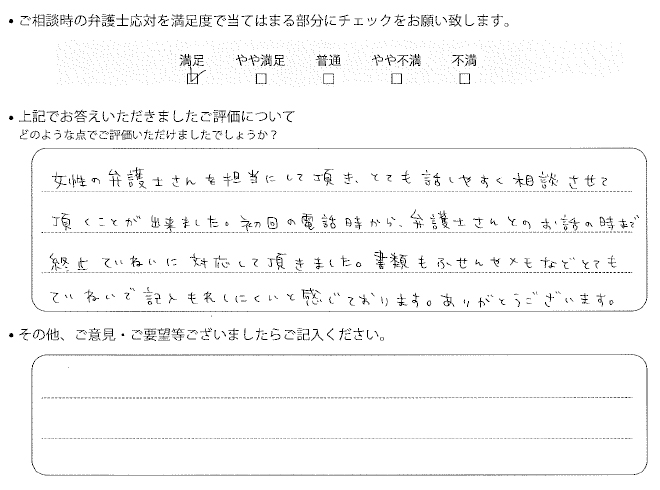 • ご相談時の弁護士応対を満足度で当てはまる部分にチェックをお願い致します。
満足 やや満足 普通 やや不満 不満
☑ □ □ □ □
• 上記でお答えいただきましたご評価について
どのような点でご評価いただけましたでしょうか？
女性の弁護士さんを担当にして頂き、とても話しやすく相談させて
頂くことが出来ました。初回の電話時から、弁護士さんとのお話の時まで
終止ていねいに対応して頂きました。書類もふせんやメモなどとても
ていねいで記入もれしにくいと感じております。ありがとうございます。
• その他、ご意見・ご要望等ございましたらご記入ください。